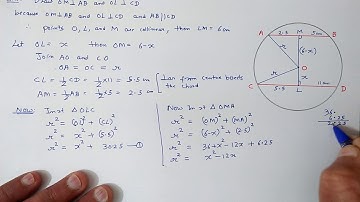 Draw OM⊥AB and OL⊥CD
because OM⊥AB and OL⊥CD and AB||CD
∴ points O, L, and M are collinear, then LM = 6m
Let OL = x then OM = 6-x
Join AO and CO
OA = OC = r
CL = 1/2 CD = 1/2 × 11 = 5.5 m
AM = 1/2 AB = 1/2 × 5 = 2.5 m
⊥ar from centre bisects the chord
Now: In rt Δ OLC
r² = (OL)² + (CL)²
r² = x² + (5.5)²
r² = x² + 30.25 —①
Now In rt Δ OMA
r² = (OM)² + (MA)²
r² = (6-x)² + (2.5)²
r² = 36 + x² - 12x + 6.25
r² = x² - 12x
A 2.5 M 5m B
r (6-x)
O
r x
C 5.5 L 11m D
36.
6.25